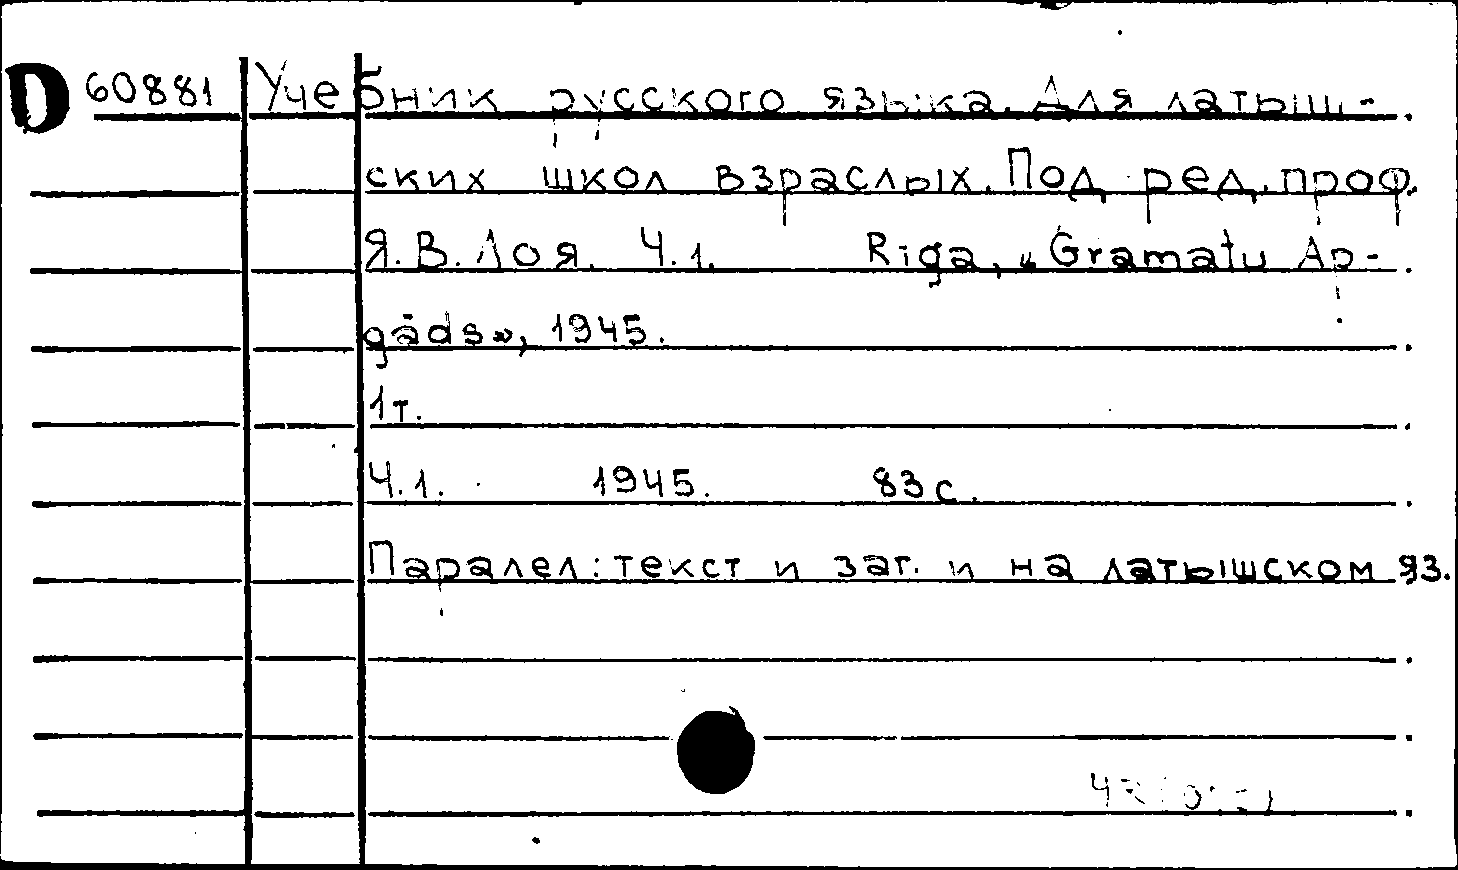 D 60881 Учебник русского языка. Для латыш-
ских школ взраслых. Под ред. проф.
Я.В. Лоя. Ч.1. Riga, „Gramatu Ap-
gāds”, 1945.
1т.
Ч.1. 1945. 83 с.
Паралел: текст и заг. и на латышском яз.